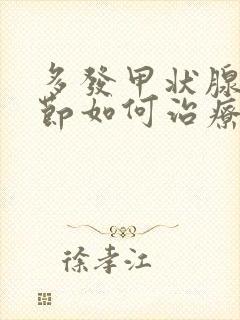 多發甲状腺
節如何治療
徐孝江